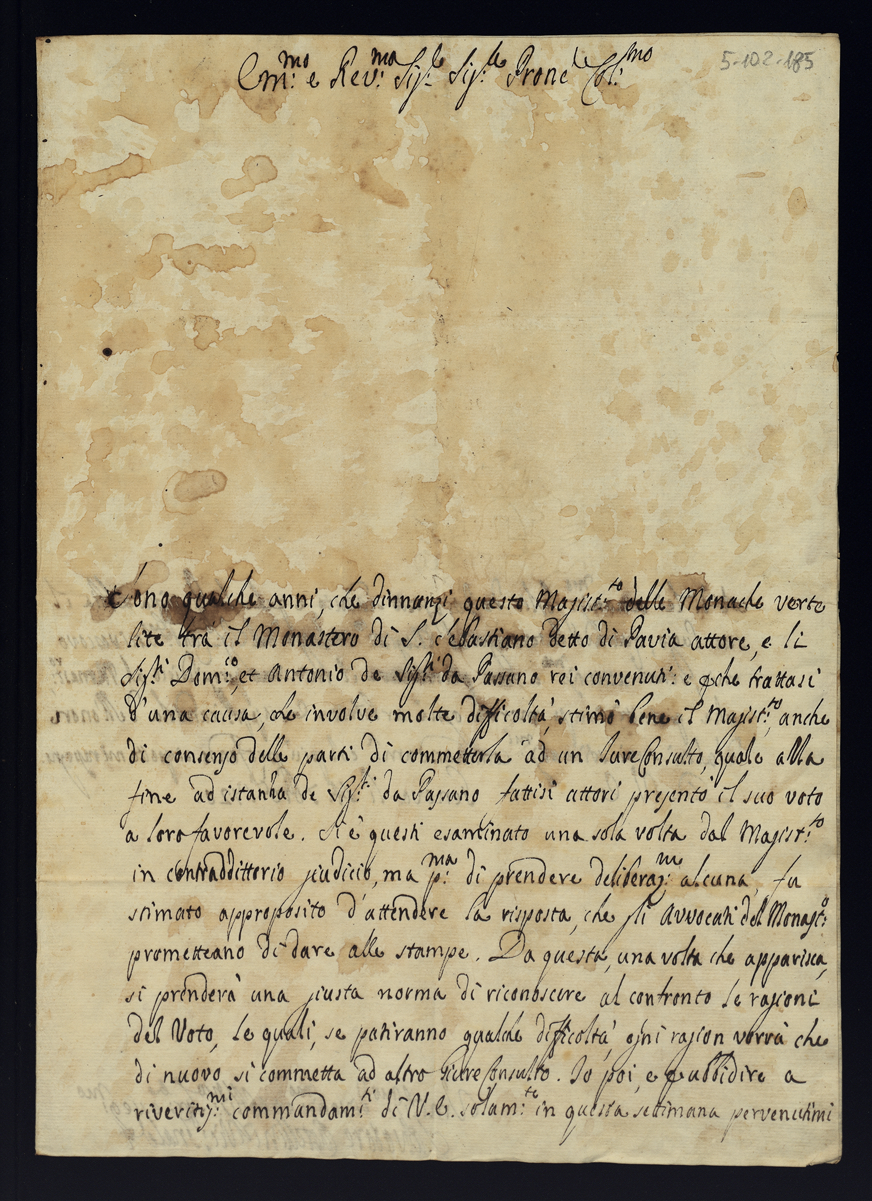 5-102-185
Em:mo e Rev:ma Sig.r Sig.r Prone Col:mo
Sono qualche anni, che dinnanzi questo Magist:to delle Monache verte
lite trà il Monastero di S. Sebastiano detto di Pavia attore, e li
Sig:ri Dom:co, et Antonio de Sig:ri da Passano rei convenuti: e pche trattasi
d'una causa, che involve molte difficoltà, stimò bene il Magist:to, anche
di consenso delle parti di commetterla ad un JureConsulto, quale alla
fine ad istanza de Sig:ri da Passano fattisi attori presentò il suo voto
a loro favorevole. Si è questi esaminato una sola volta dal Magist:to
in contraddittorio giudicio, ma p:ma di prendere deliberaz:ne alcuna, fu
stimato approposito d'attendere la risposta, che gli Avvocati del Monast:o
prometteano di dare alle stampe. Da questa, una volta che apparisca,
si prenderà una giusta norma di riconoscere al confronto le ragioni
del Voto, le quali, se patiranno qualche difficoltà, ogni ragion vorrà che
di nuovo si commetta ad altro JureConsulto. Io poi, e p ubbidire a
riveritiss:mi commandam:ti di V. E. solam:te in questa settimana pervenutimi